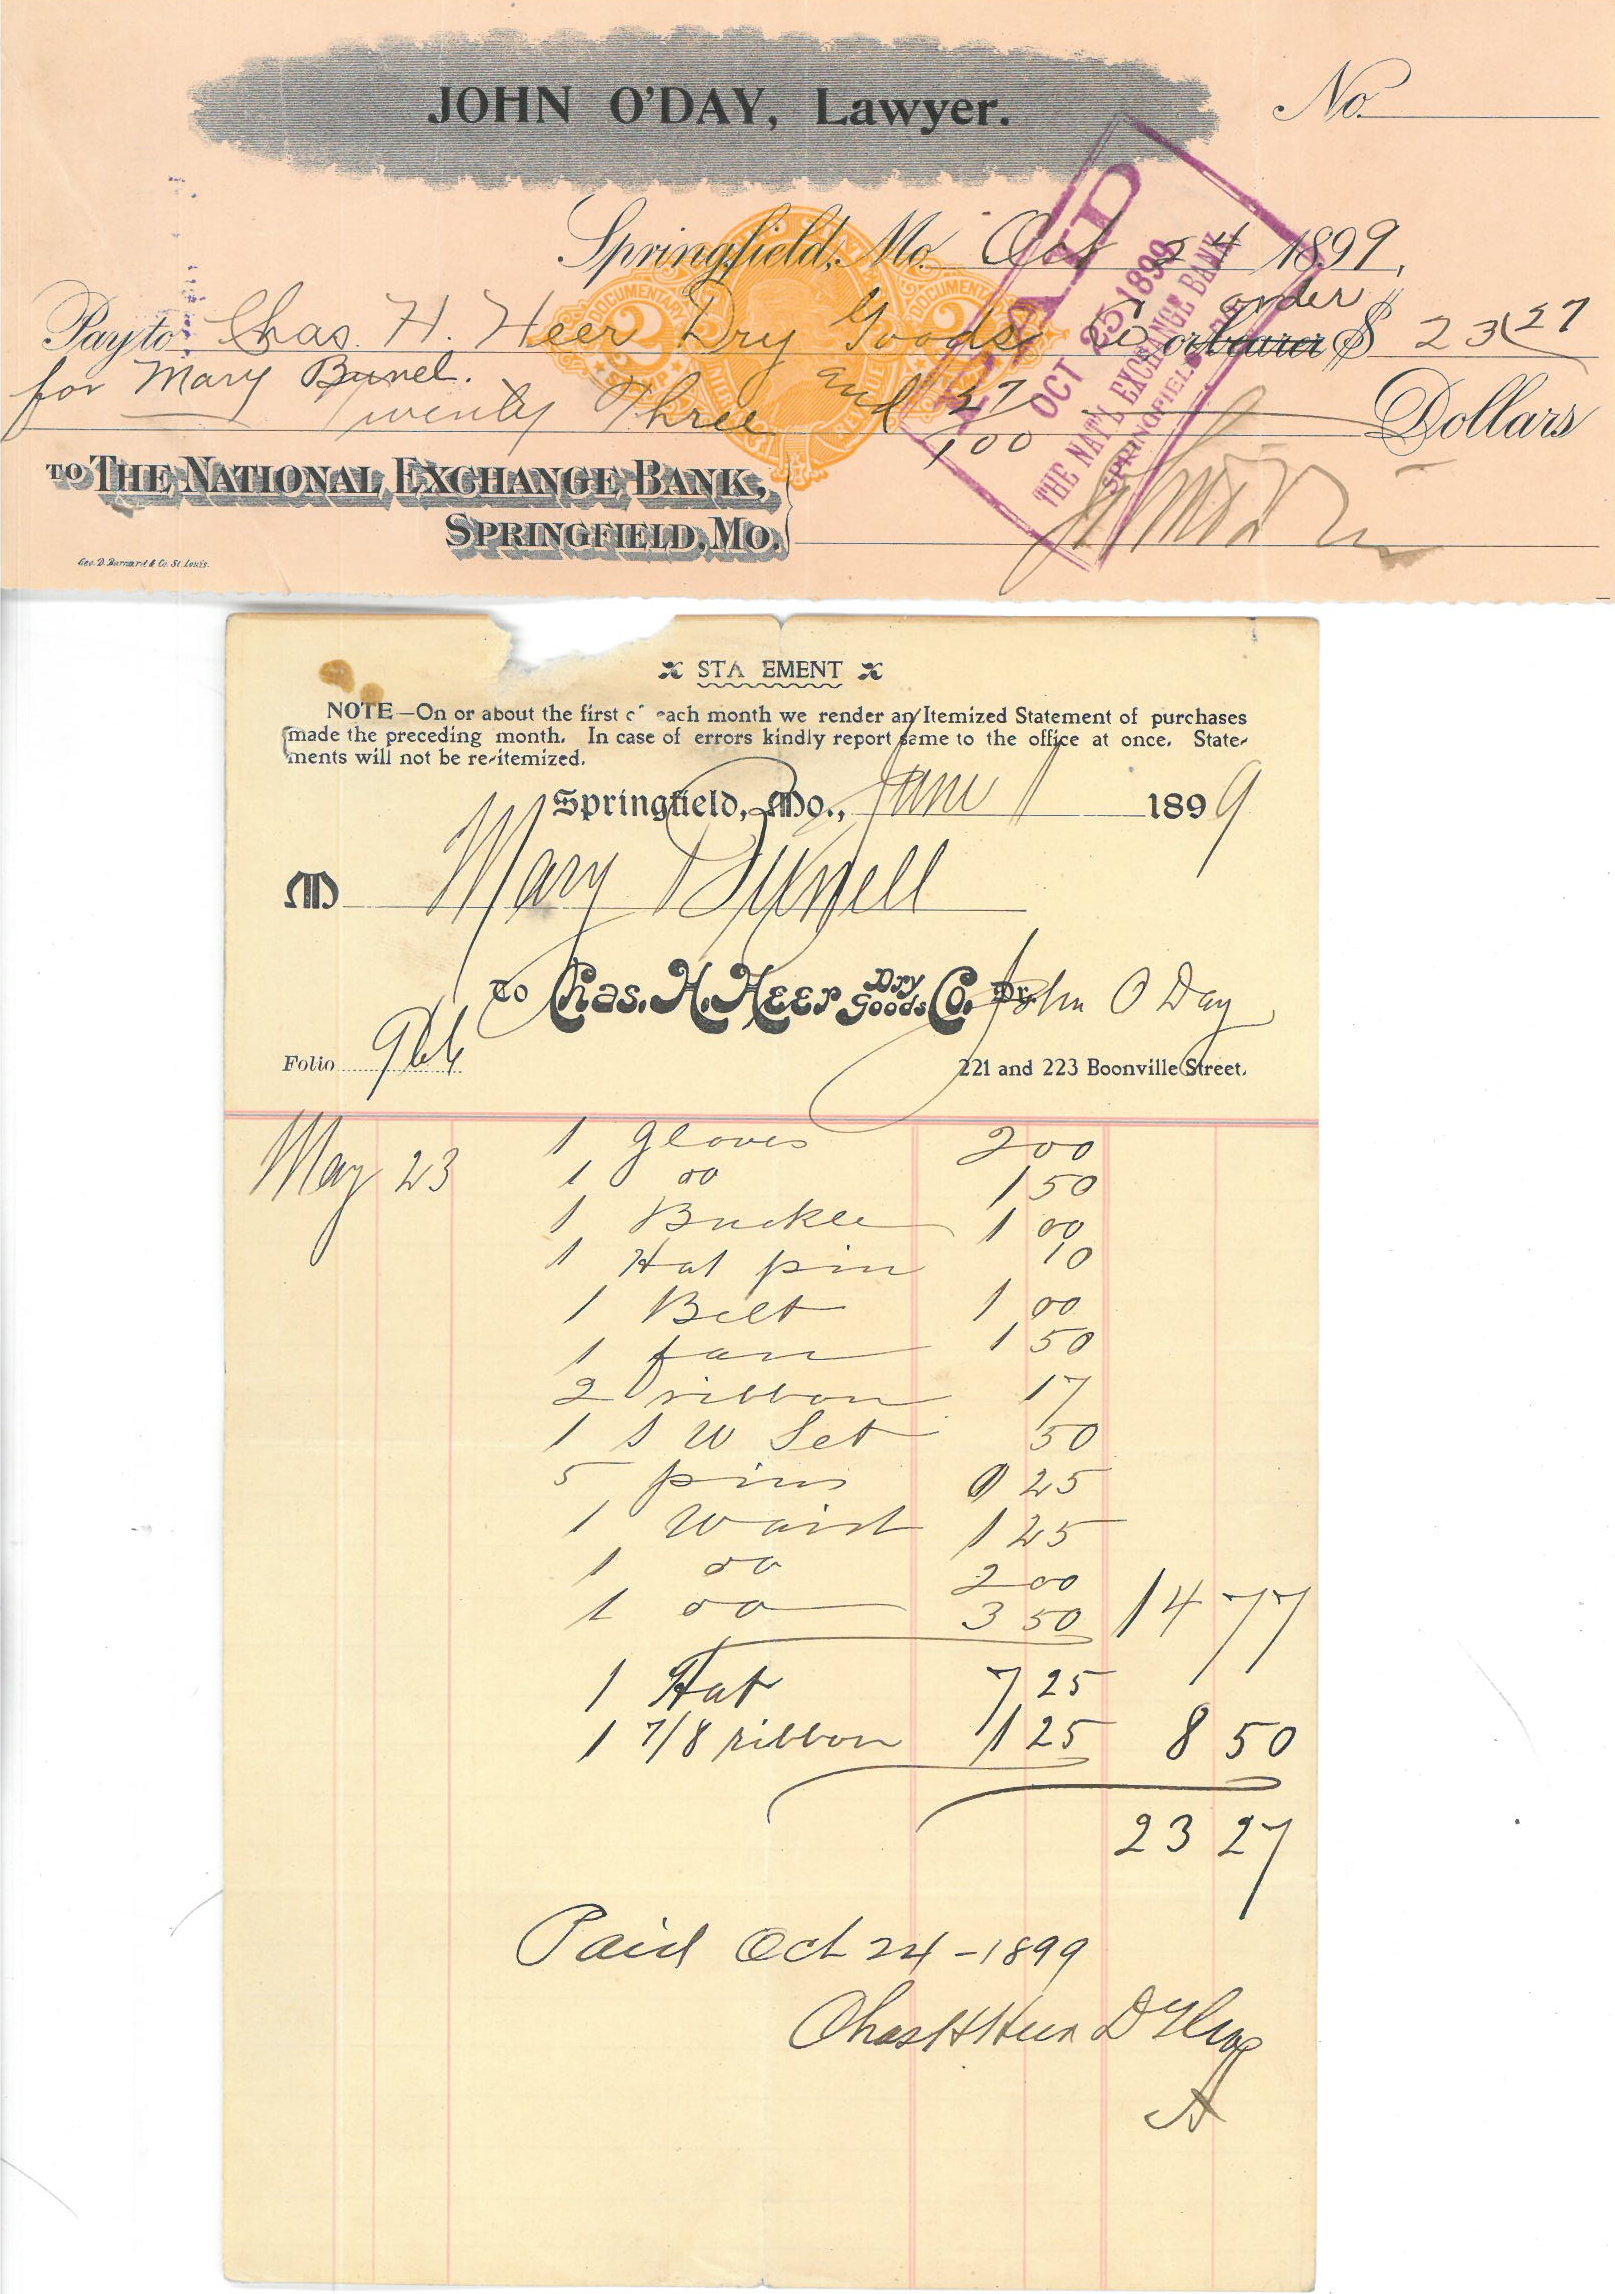 JOHN O'DAY, Lawyer.
No.
Springfield, Mo. Oct 24 1899,
Pay to Chas. H. Heer Dry Goods Co or bearer order $ 23 27
for Mary Bunel.
Twenty Three and 27/100 Dollars
TO THE NATIONAL EXCHANGE BANK,
SPRINGFIELD, MO.
Geo. D. Barnard & Co. St. Louis.
DOCUMENTARY
DOCUMENTARY
2
2
PAID
OCT 25 1899
THE NAT'L EXCHANGE BANK
SPRINGFIELD, MO.
STA EMENT
NOTE—On or about the first of each month we render an Itemized Statement of purchases
made the preceding month. In case of errors kindly report same to the office at once. State-
ments will not be re-itemized.
Springfield, Mo., June 1 1899
M Mary Bunell
To Chas. H. Heer Dry Goods Co. Dr.
John O Day
Folio
221 and 223 Boonville Street.
May 23 1 gloves 2 00
1 do 1 50
1 Buckle 1 00
1 Hat pin 10
1 Belt 1 00
1 fan 1 50
2 ribbon 17
1 S W Set 50
5 pins 25
1 Waist 1 25
1 do 2 00
1 do 3 50 14 77
1 Hat 7 25
1 7/8 ribbon 1 25 8 50
23 27
Paid Oct 24 - 1899
Chas H Heer D G Co